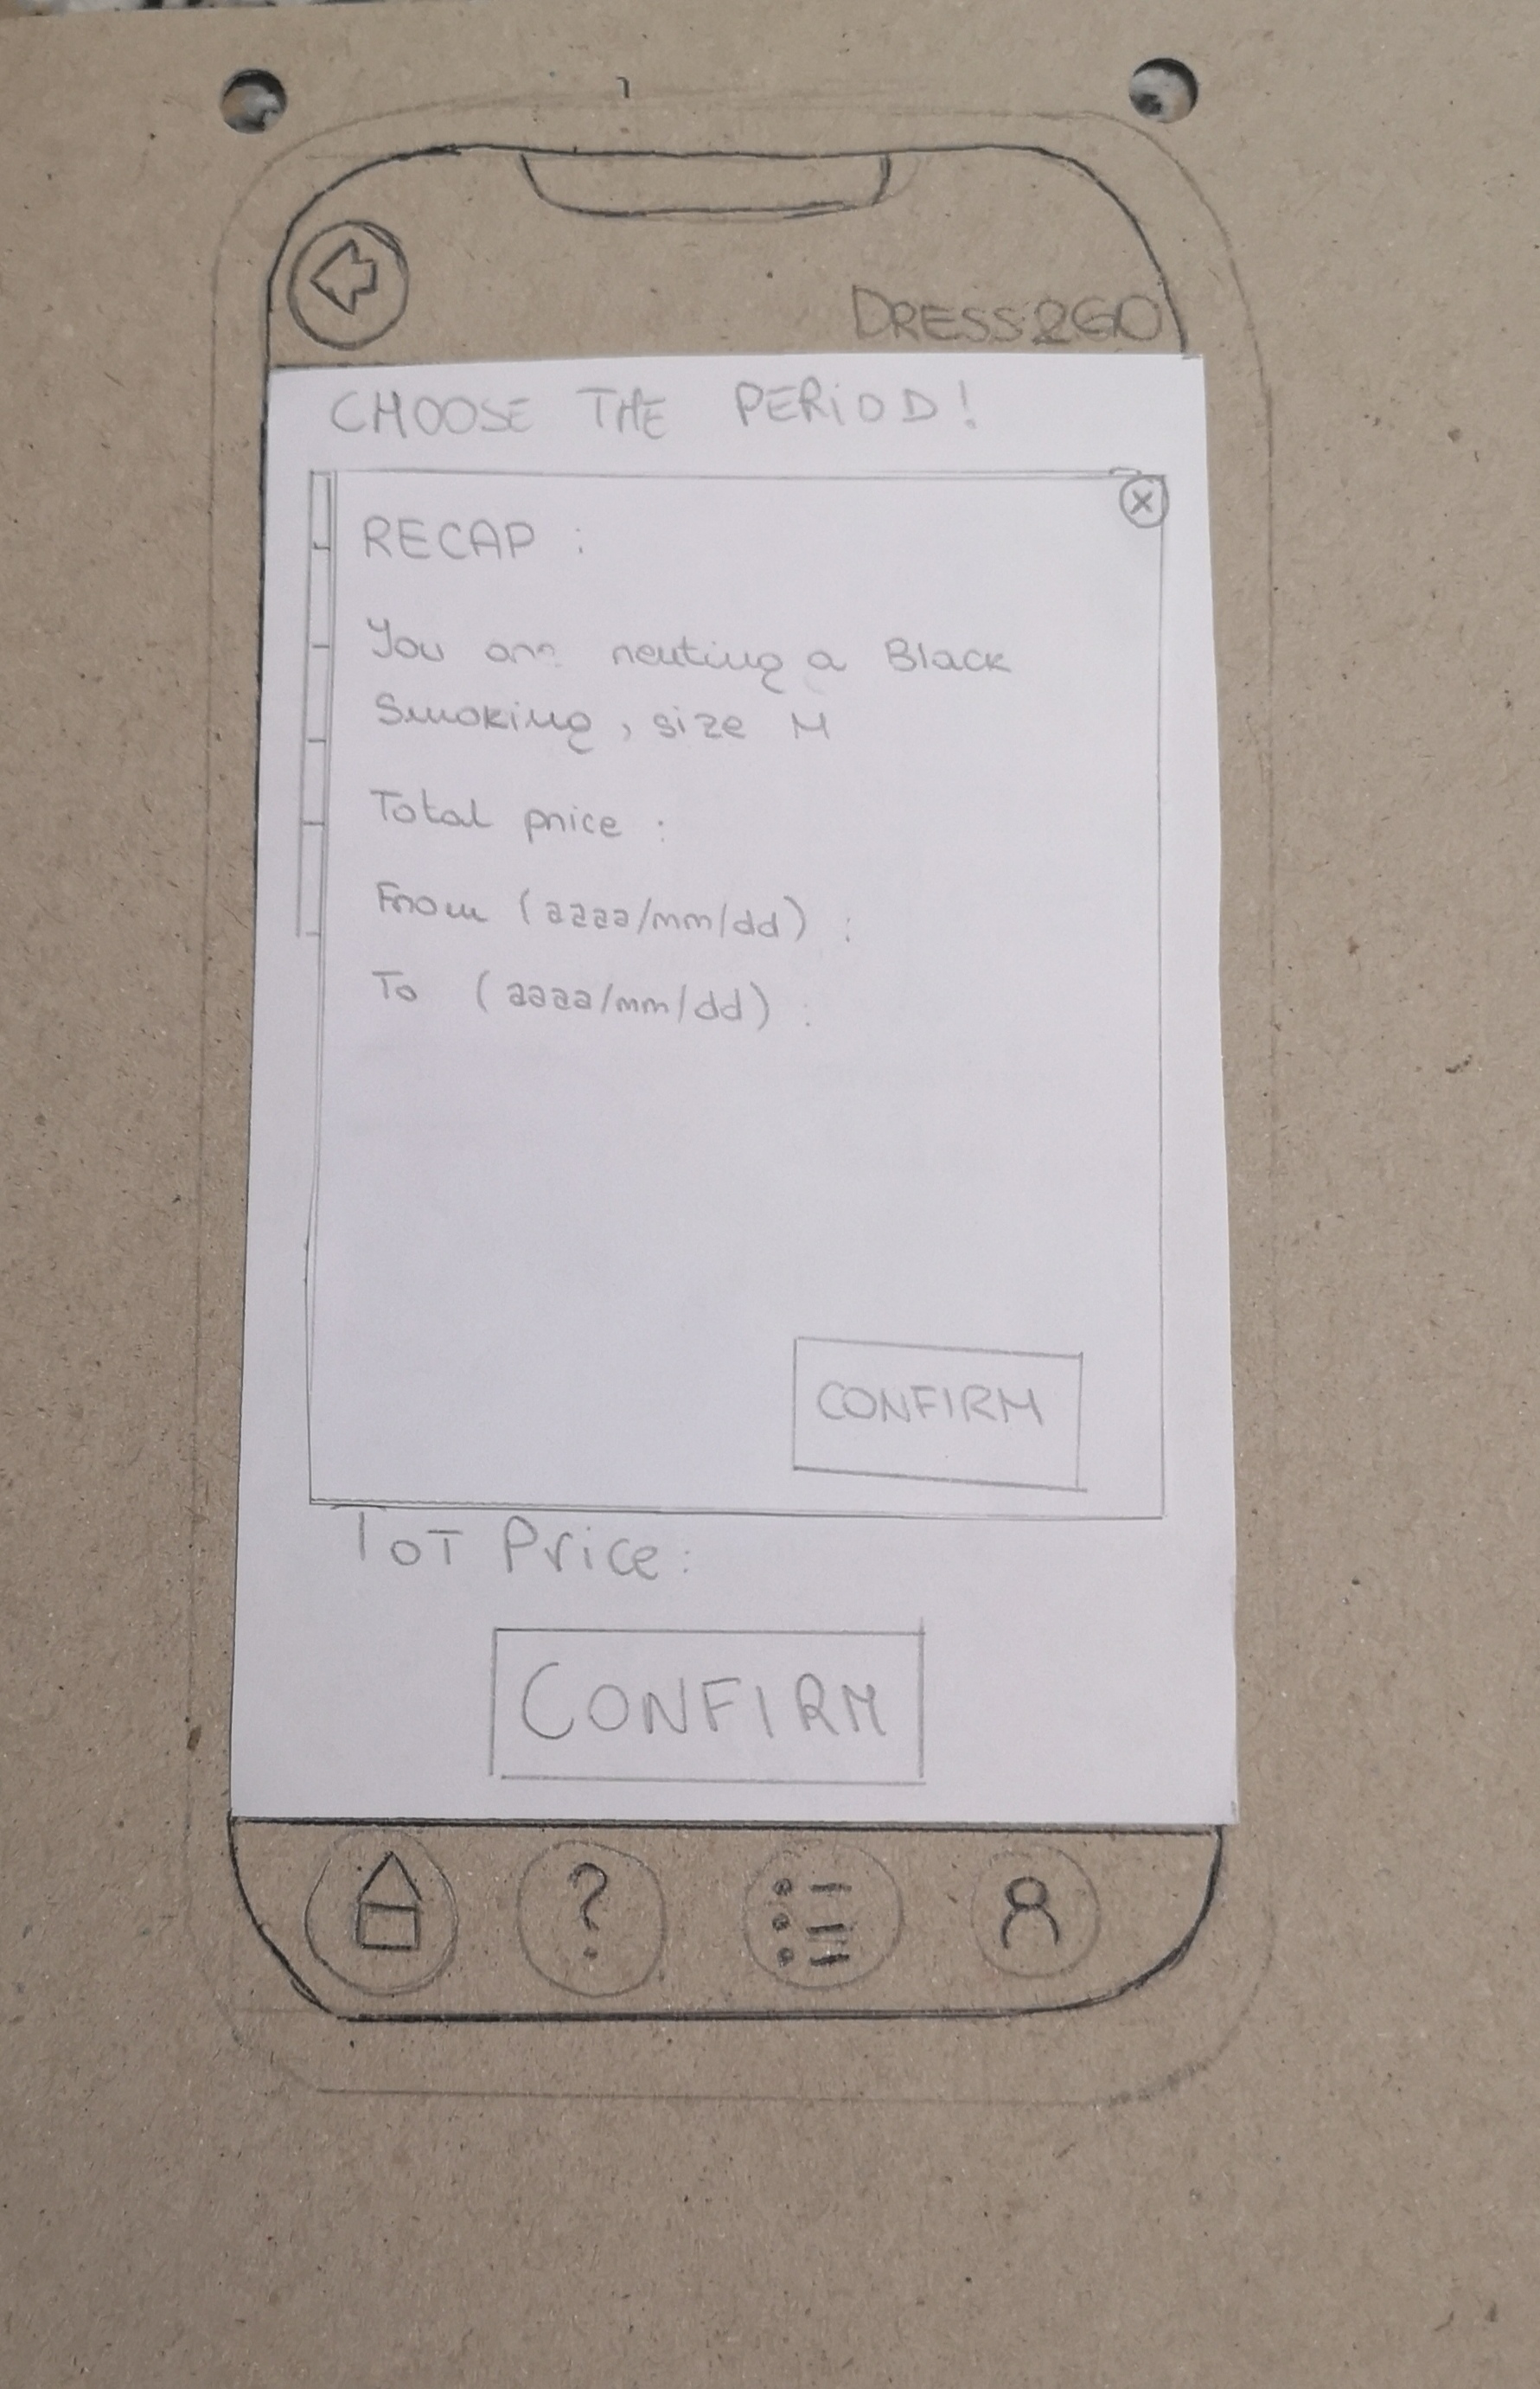 DRESS2GO
CHOOSE THE PERIOD!
RECAP :
You are renting a Black
Smoking, size M
Total price :
From (aaaa/mm/dd) :
To (aaaa/mm/dd) :
CONFIRM
TOT Price:
CONFIRM
?